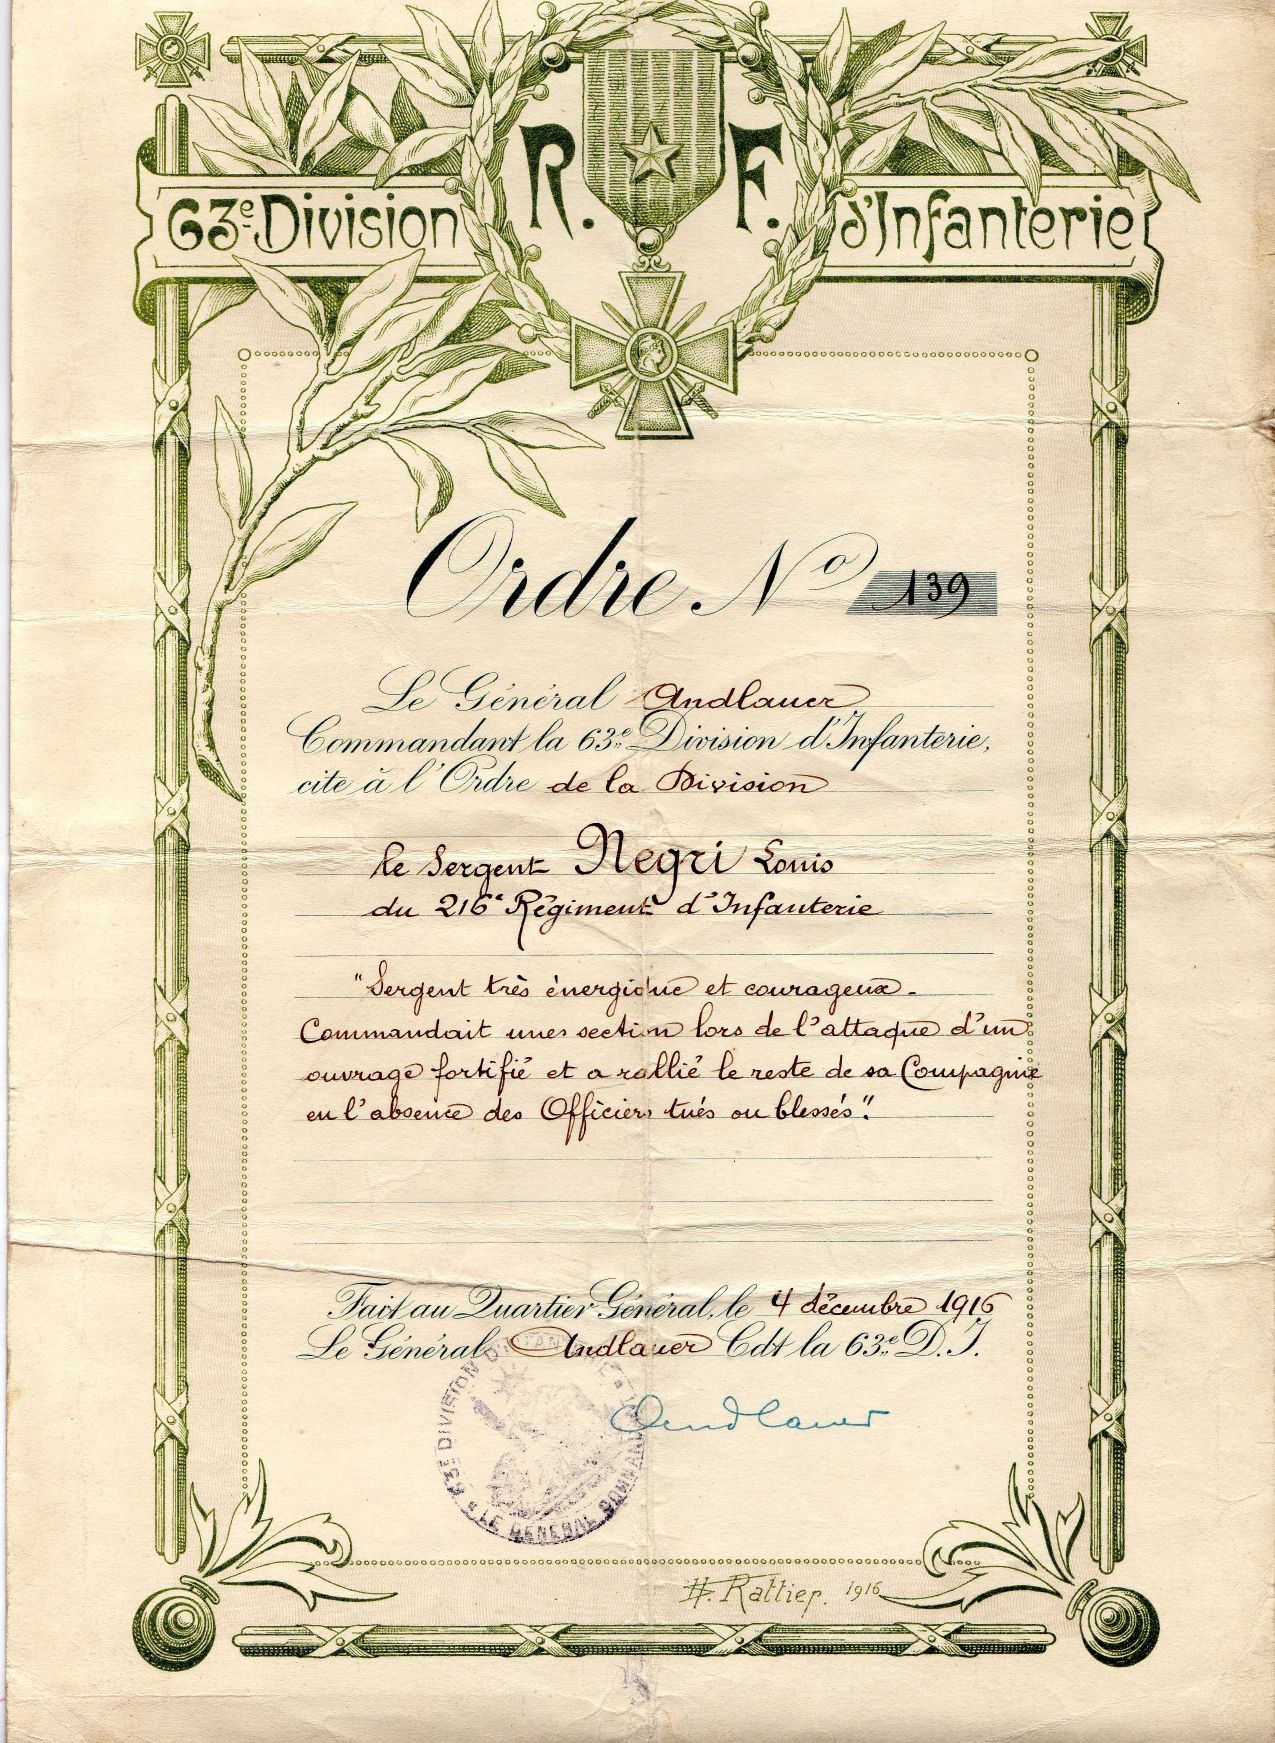 63e Division R. F. d'Infanterie
Ordre No 139
Le Général Andlauer
Commandant la 63e Division d'Infanterie,
cite à l'Ordre de la Division
le Sergent Negri Louis
du 216e Régiment d'Infanterie
"Sergent très énergique et courageux -
Commandait une section lors de l'attaque d'un
ouvrage fortifié et a rallié le reste de sa Compagnie
en l'absence des Officiers tués ou blessés".
Fait au Quartier Général, le 4 décembre 1916
Le Général Andlauer Cdt la 63e D.I.
Andlauer
63e DIVISION D'INFANTERIE * LE GÉNÉRAL COMMANDANT
H. Rattier. 1916